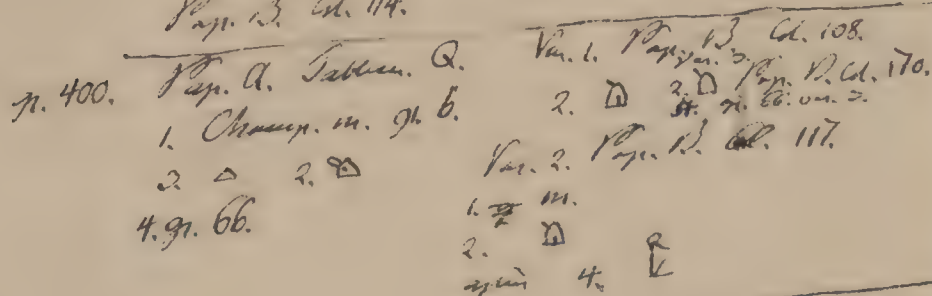 Pap. B. Col. 114.
n. 400. Pap. A. Tableau. Q.
1. Champ. m. gr. 6.
3. 2.
4. gr. 66.
Var. 1. Pap. B. Col. 108.
2. 2. Pap. D. Col. 170.
gr. 66. var. 2.
Var. 2. Pap. B. Col. 117.
1. m.
2.
4.